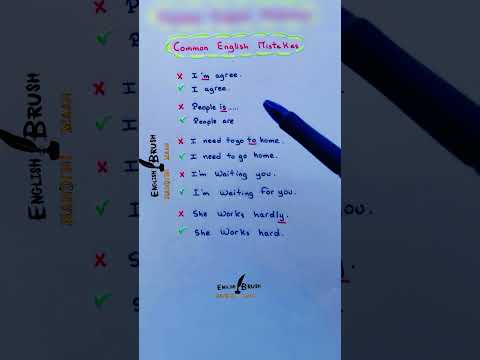 Common English Mistakes
✗ I'm agree.
✓ I agree.
✗ People is.....
✓ People are
✗ I need to go to home.
✓ I need to go home.
✗ I'm Waiting you.
✓ I'm Waiting for you.
✗ She Works hardly.
✓ She Works hard.
ENGLISH BRUSH
ENGLISH BRUSH
ENGLISH BRUSH